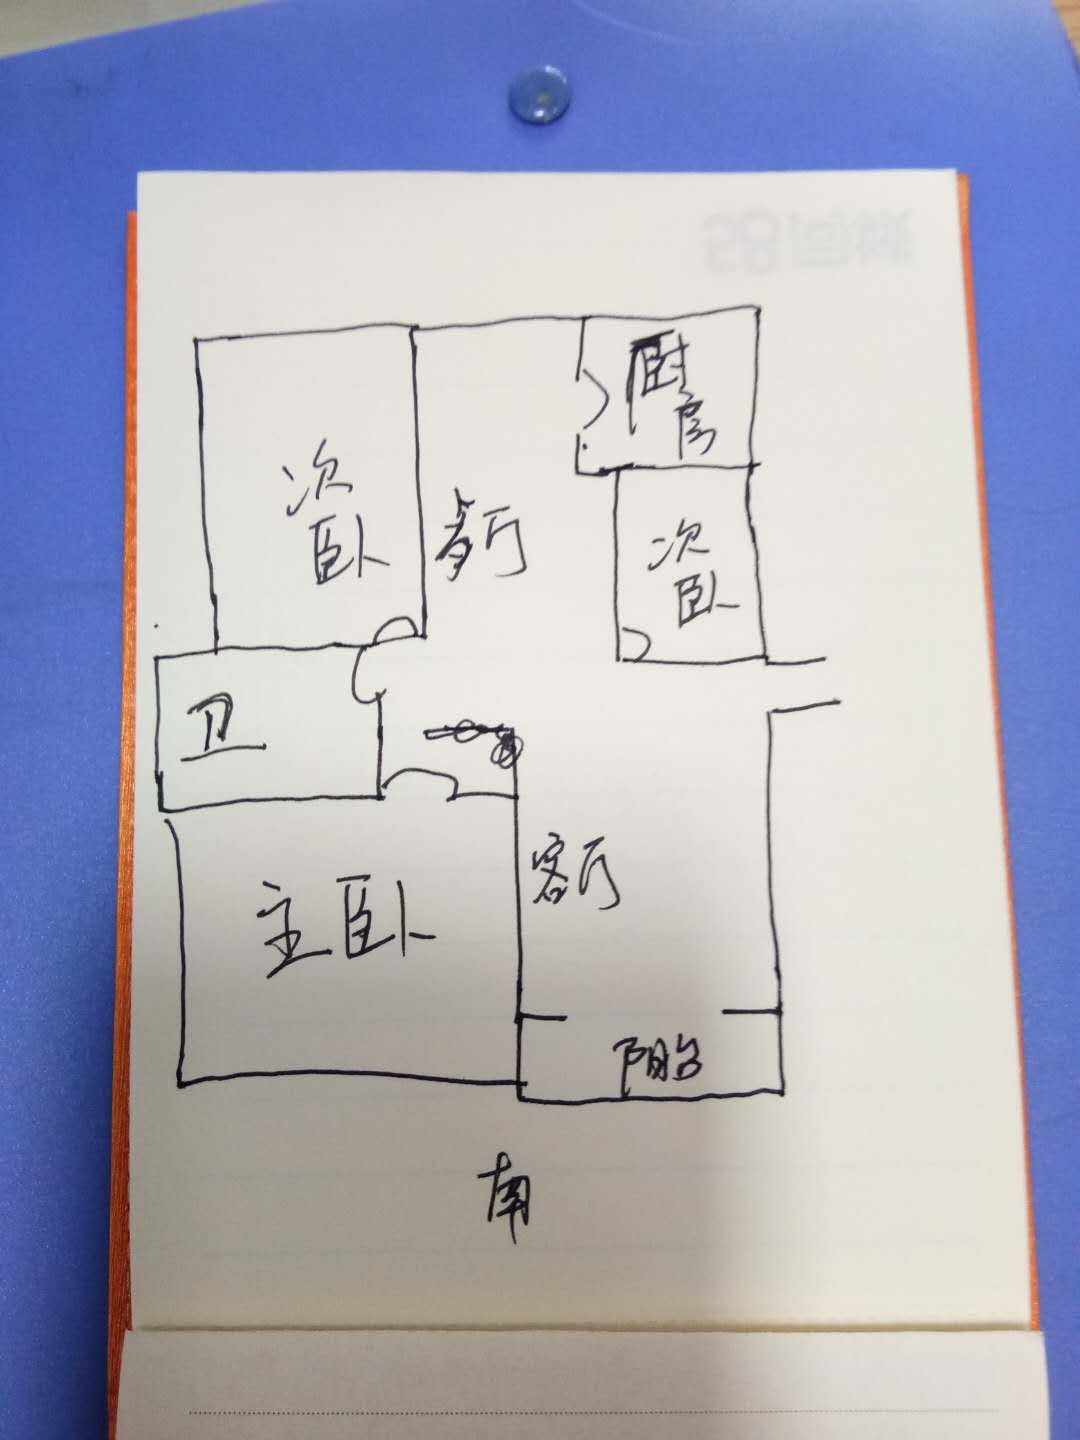 厨
房
次
卧
餐厅
次
卧
卫
客厅
主卧
阳台
南